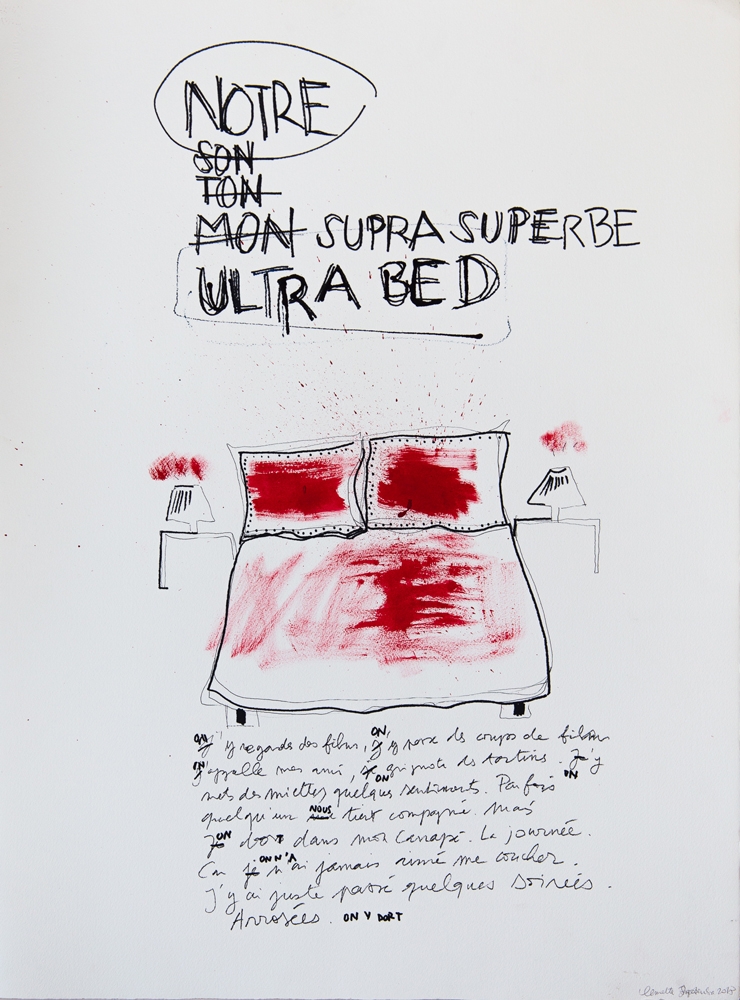 NOTRE
SON
TON
MON SUPRA SUPERBE
ULTRA BED
ON J'y regarde des films, ON J'y passe des coups de
ON J'appelle mes amis, ON grignote des tartines. J'y
mets des miettes quelques sentiments. Parfois ON
quelqu'un NOUS tient compagnie. Mais
Je ON dort dans mon canapé. La journée.
Car je ON N'A n'ai jamais aimé me coucher.
J'y ai juste passé quelques soirées.
Arrosées. ON Y DORT